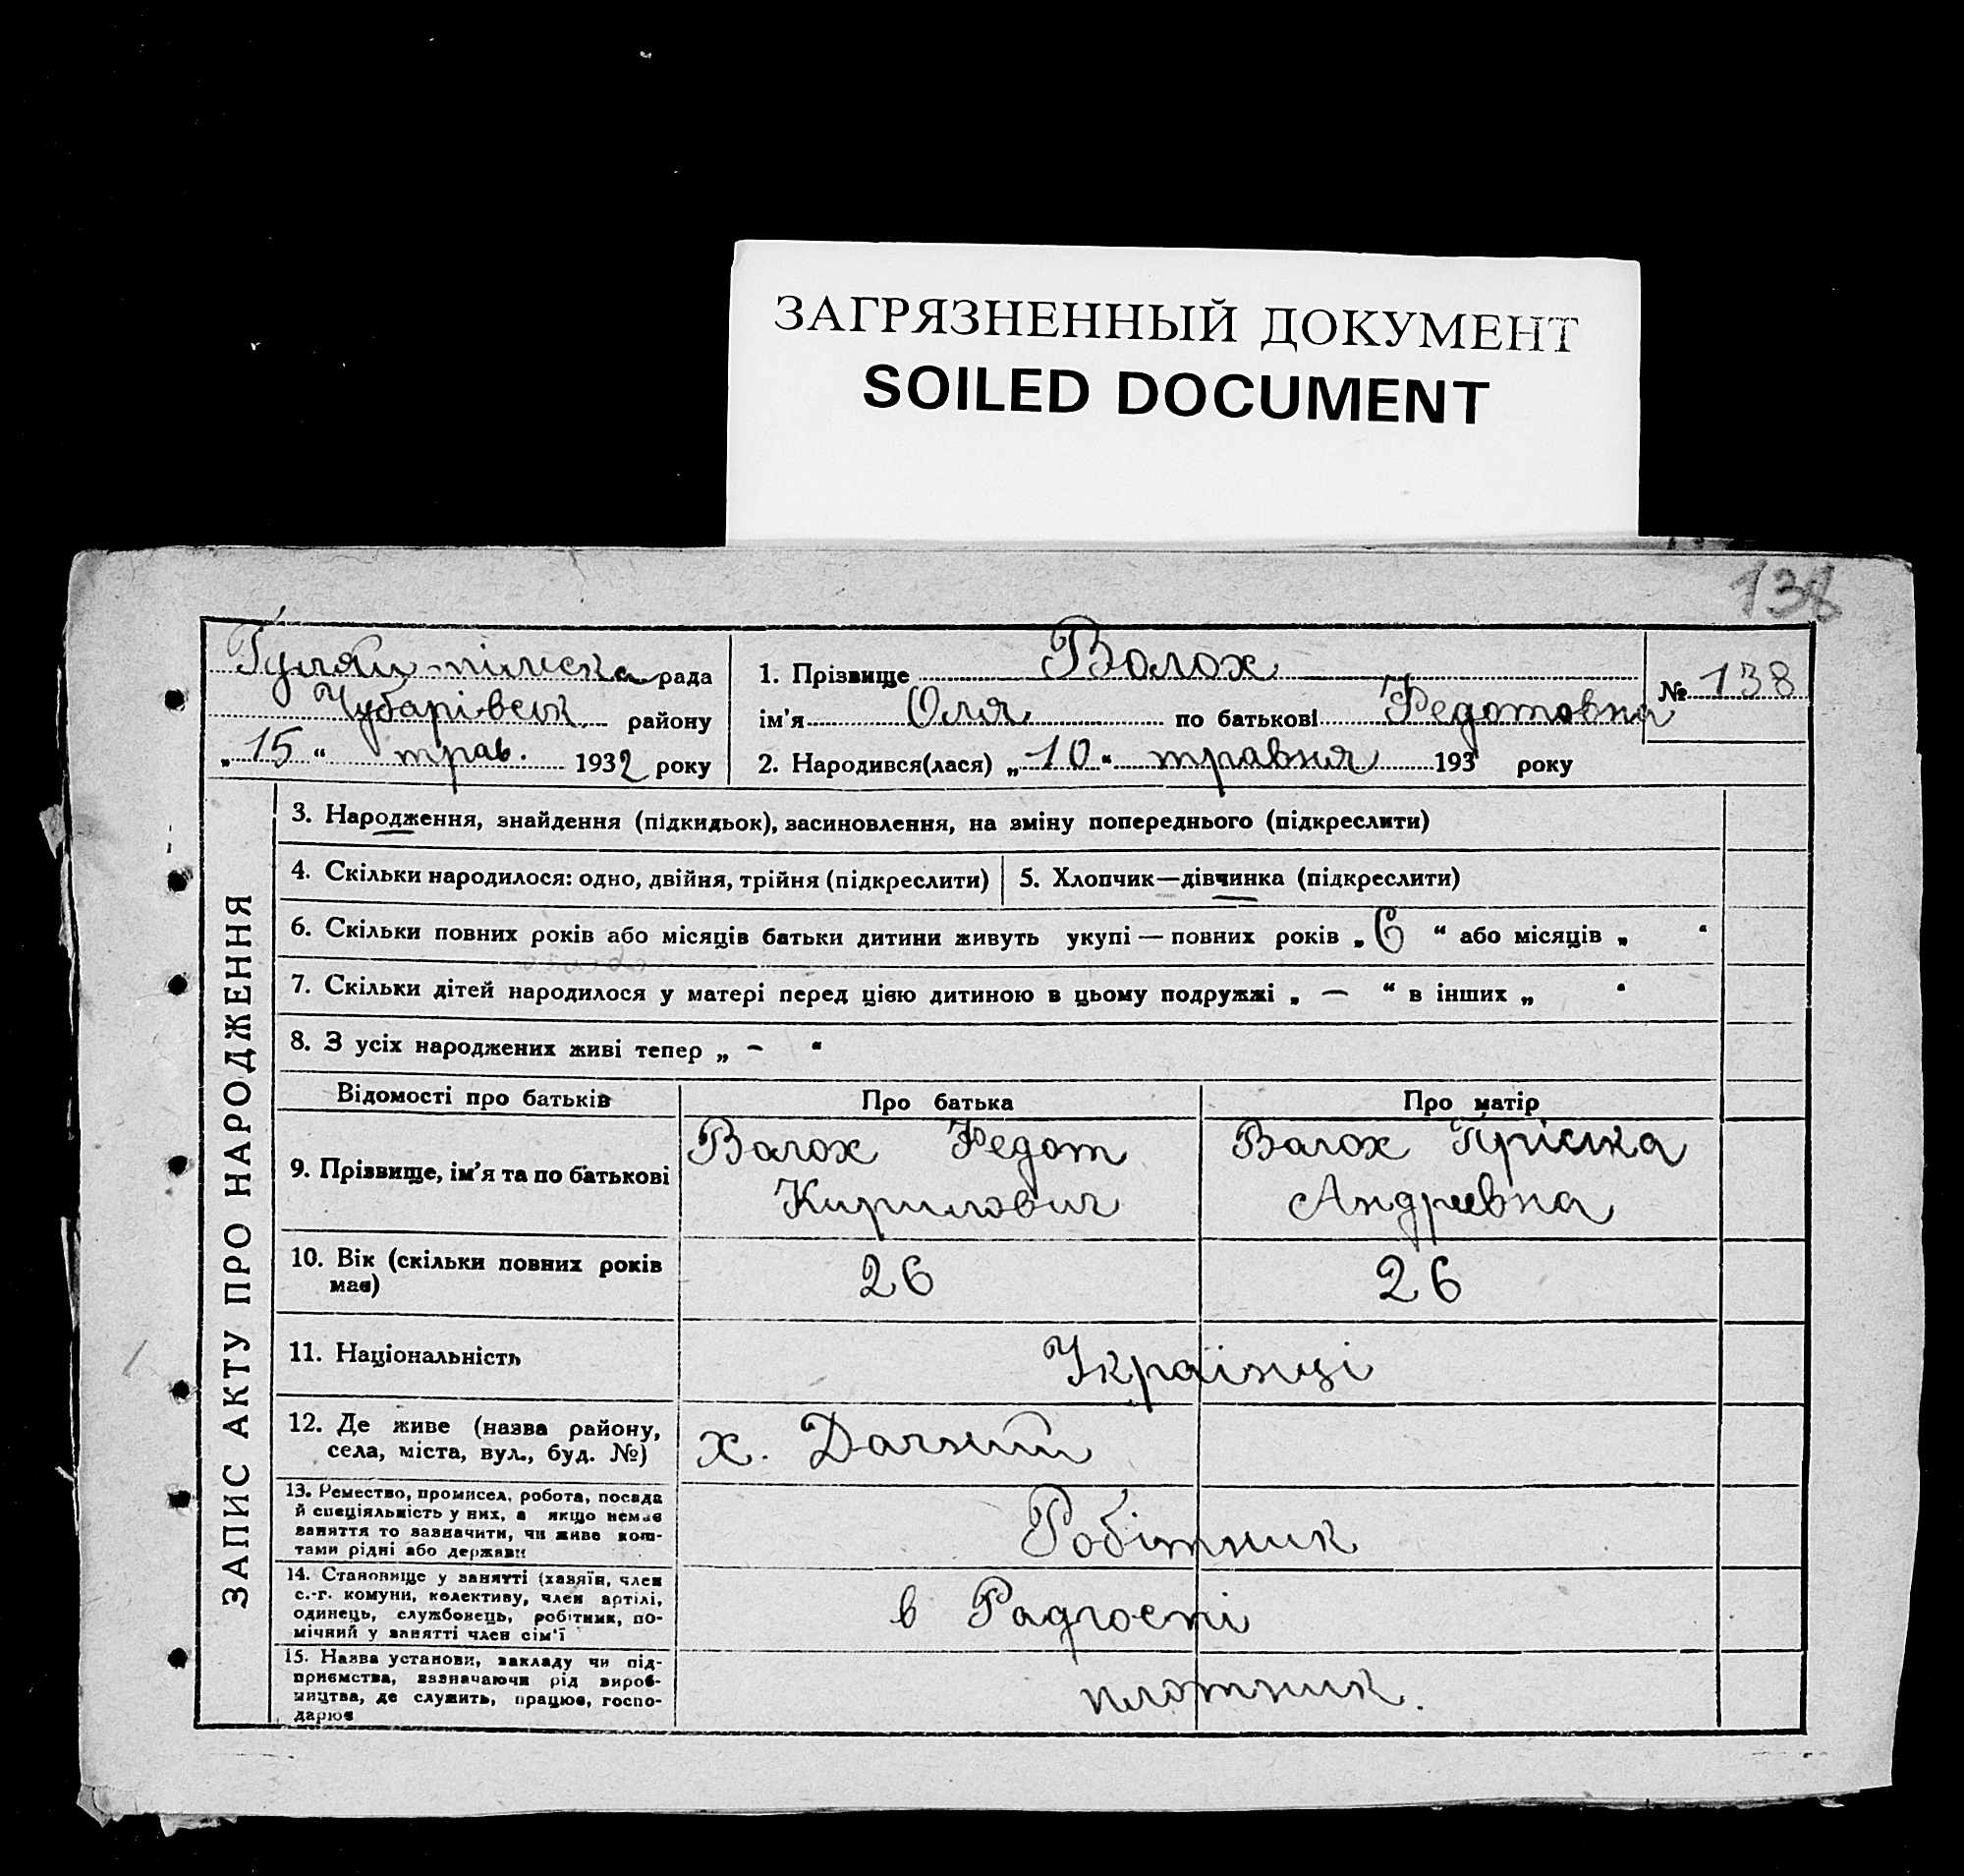 ЗАГРЯЗНЕННЫЙ ДОКУМЕНТ
SOILED DOCUMENT
138
Гуляй-пільска рада
Чубарівськ. району
„15“ трав. 1932 року
1. Прізвище Волох
ім'я Оля по батькові Федотовна
№ 138
2. Народився(лася) „10“ травня 193 року
ЗАПИС АКТУ ПРО НАРОДЖЕННЯ
3. Народження, знайдення (підкидьок), засиновлення, на зміну попереднього (підкреслити)
4. Скільки народилося: одно, двійня, трійня (підкреслити)
5. Хлопчик—дівчинка (підкреслити)
6. Скільки повних років або місяців батьки дитини живуть укупі — повних років „6“ або місяців „ “
7. Скільки дітей народилося у матері перед цією дитиною в цьому подружжі „ — “ в інших „ “
8. З усіх народжених живі тепер „ – “
Відомості про батьків
Про батька
Про матір
9. Прізвище, ім'я та по батькові
Волох Федот
Кирилович
Волох Пріська
Андріевна
10. Вік (скільки повних років
має)
26
26
11. Національність
Українці
12. Де живе (назва району,
села, міста, вул., буд. №)
х. Дачний
13. Ремество, промисел, робота, посада
й спеціяльність у них, а якщо немає
заняття то зазначити, чи живе кош-
тами рідні або держави
Робітник
14. Становище у занятті (хазяїн, член
с.-г. комуни, колективу, член артілі,
одинець, службовець, робітник, по-
мічний у занятті член сім'ї
в Радгоспі
15. Назва установи, закладу чи під-
приємства, зазначаючи рід вироб-
ництва, де служить, працює, госпо-
дарює
плотник.